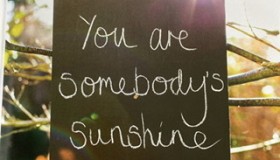 You are
somebody's
sunshine